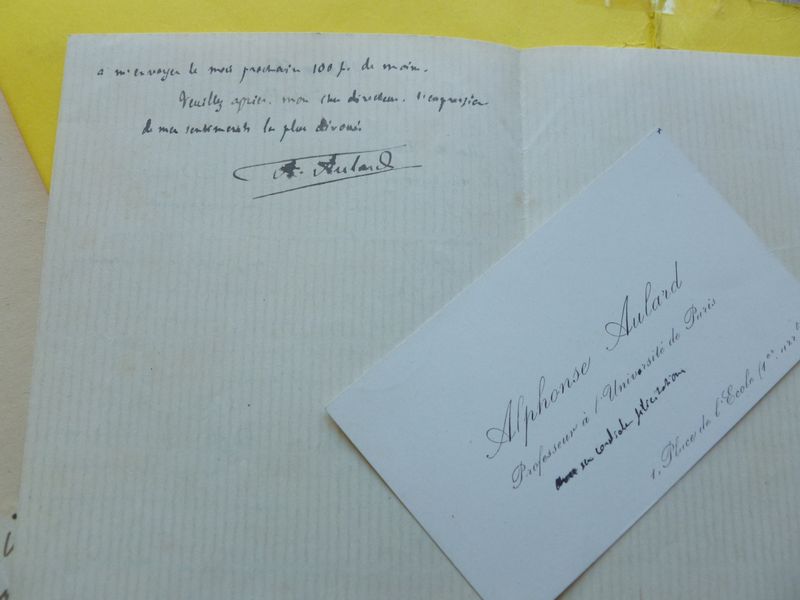 à m'envoyer le mois prochain 100 f. de moins.
Veuillez agréer, mon cher directeur, l'expression
de mes sentiments les plus dévoués
A. Aulard
Alphonse Aulard
Professeur à l'Université de Paris
ses cordiales félicitations
1, Place de l'Ecole (1er arrt